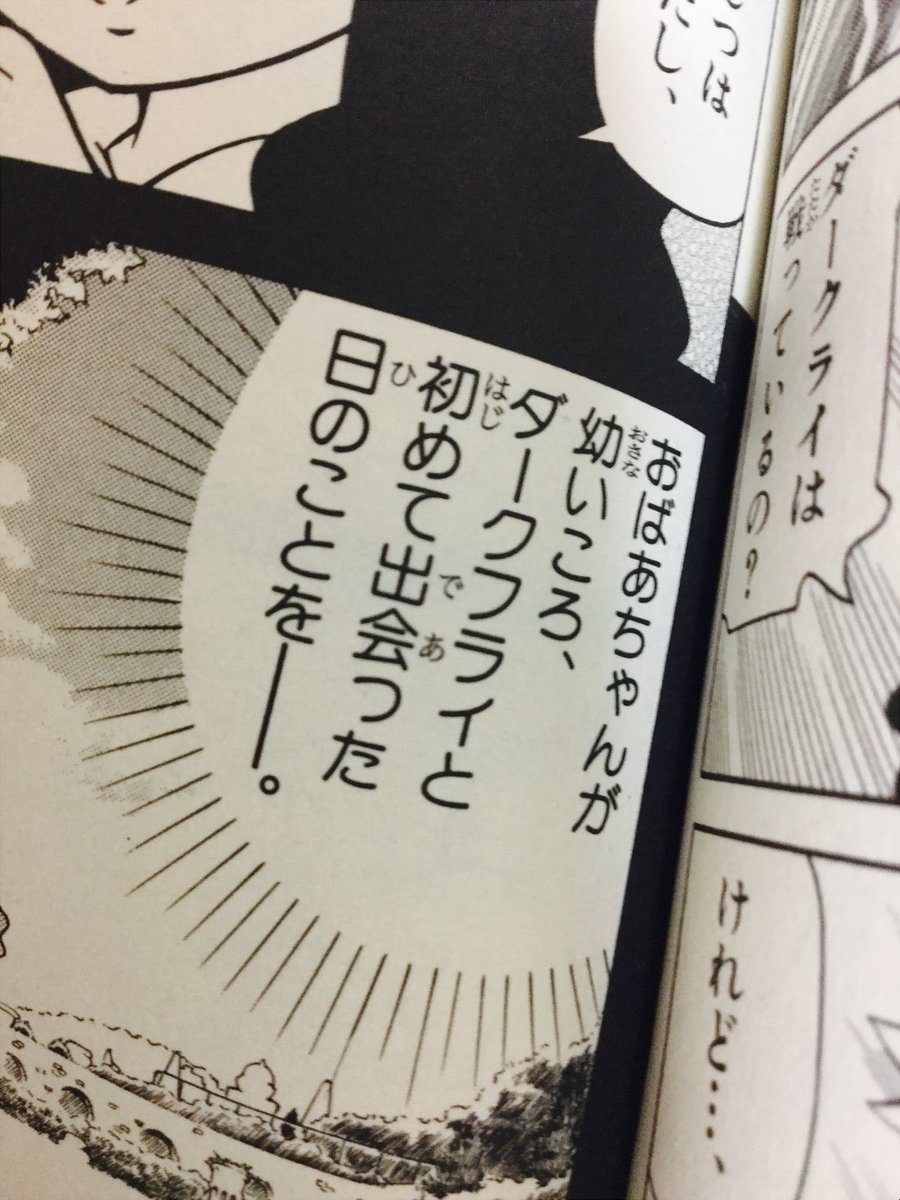 ダークライは
戦っているの?
けれど…、
つは
だし、
おばあちゃんが
幼いころ、
ダークフライと
初めて出会った
日のことを――。